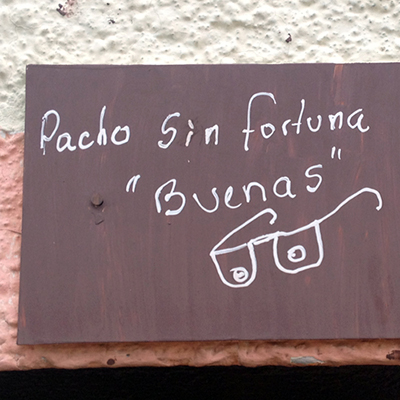 Pacho Sin fortuna
"Buenas"